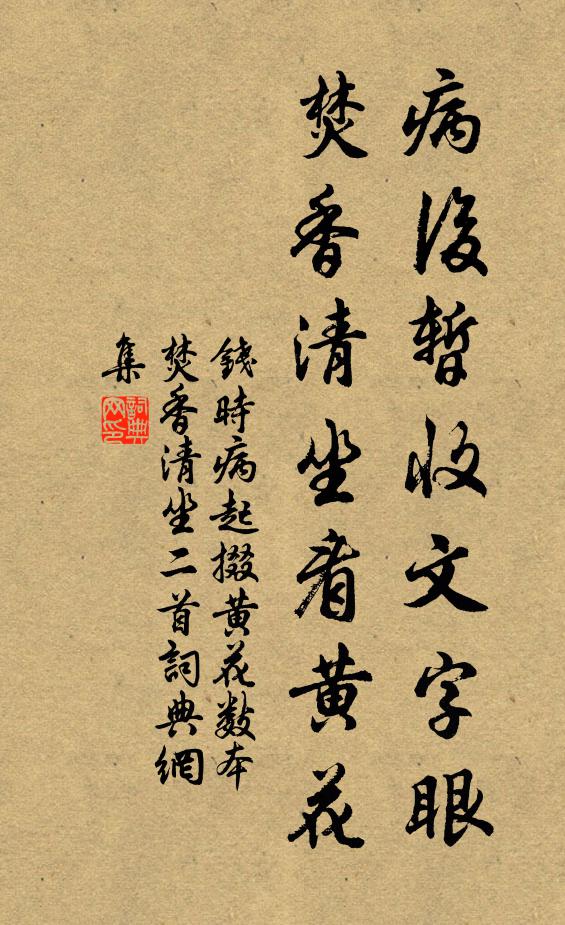 病後暫收文字眼
焚香清坐看黃花
錢時病起掇黃花數本
焚香清坐二首詞典網
集
詞典
网印